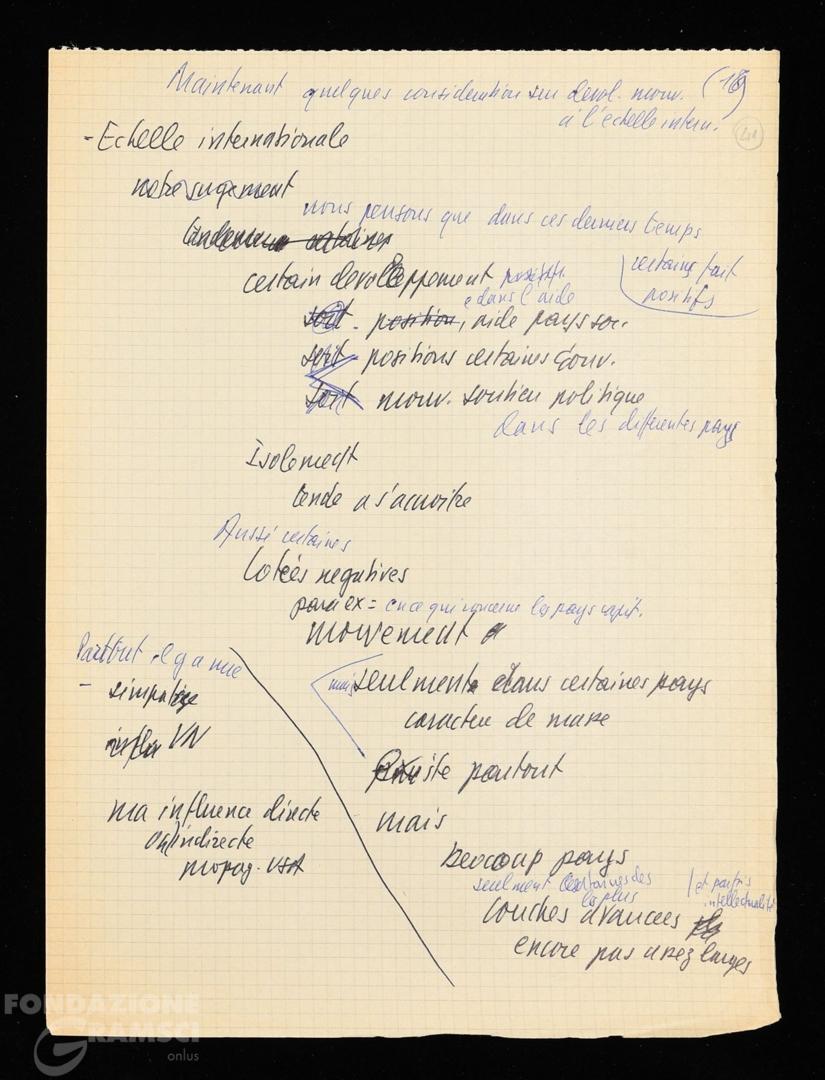 Maintenant quelques consideration sur devol. mouv. (18)
à l'échelle intern.
41
- Echelle internationale
notre sugement
nous pensons que dans ces derniers temps
certain devolleppement positif.
certains fait
positifs
e dans l'aide
soit - position, aide pays soc.
soit positions certaines Gouv.
soit mouv. soutien politique
dans les differentes pays
Isolement
tende a s'acroitre
Aussi certaines
Cotées negatives
par ex = en ce qui concerne les pays capit.
mouvement
mais seulment dans certaines pays
caractere de masse
existe partout
mais
beocoup pays
seulment certaines des
les plus
(et partis
intellectualité
couches avancées
encore pas assez larges
Partout il y a une
- simpatize
VN
ma influence directe
ou indirecte
propag. USA
FONDAZIONE
GRAMSCI
onlus